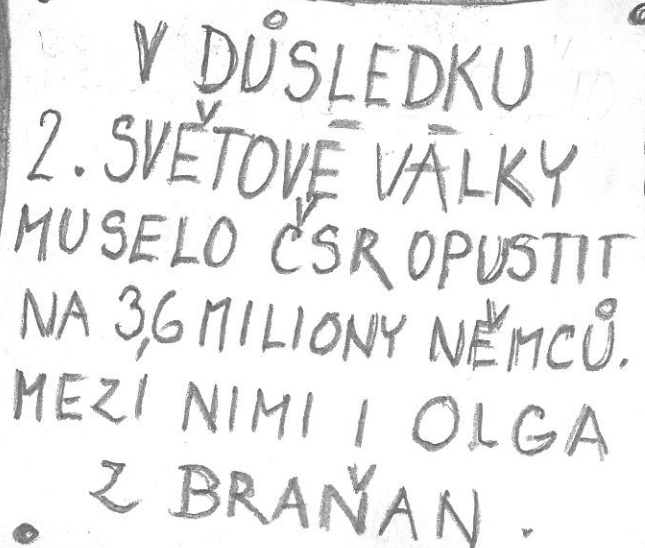 V DŮSLEDKU
2. SVĚTOVÉ VÁLKY
MUSELO ČSR OPUSTIT
NA 3,6 MILIONY NĚMCŮ.
MEZI NIMI I OLGA
Z BRAŇAN.